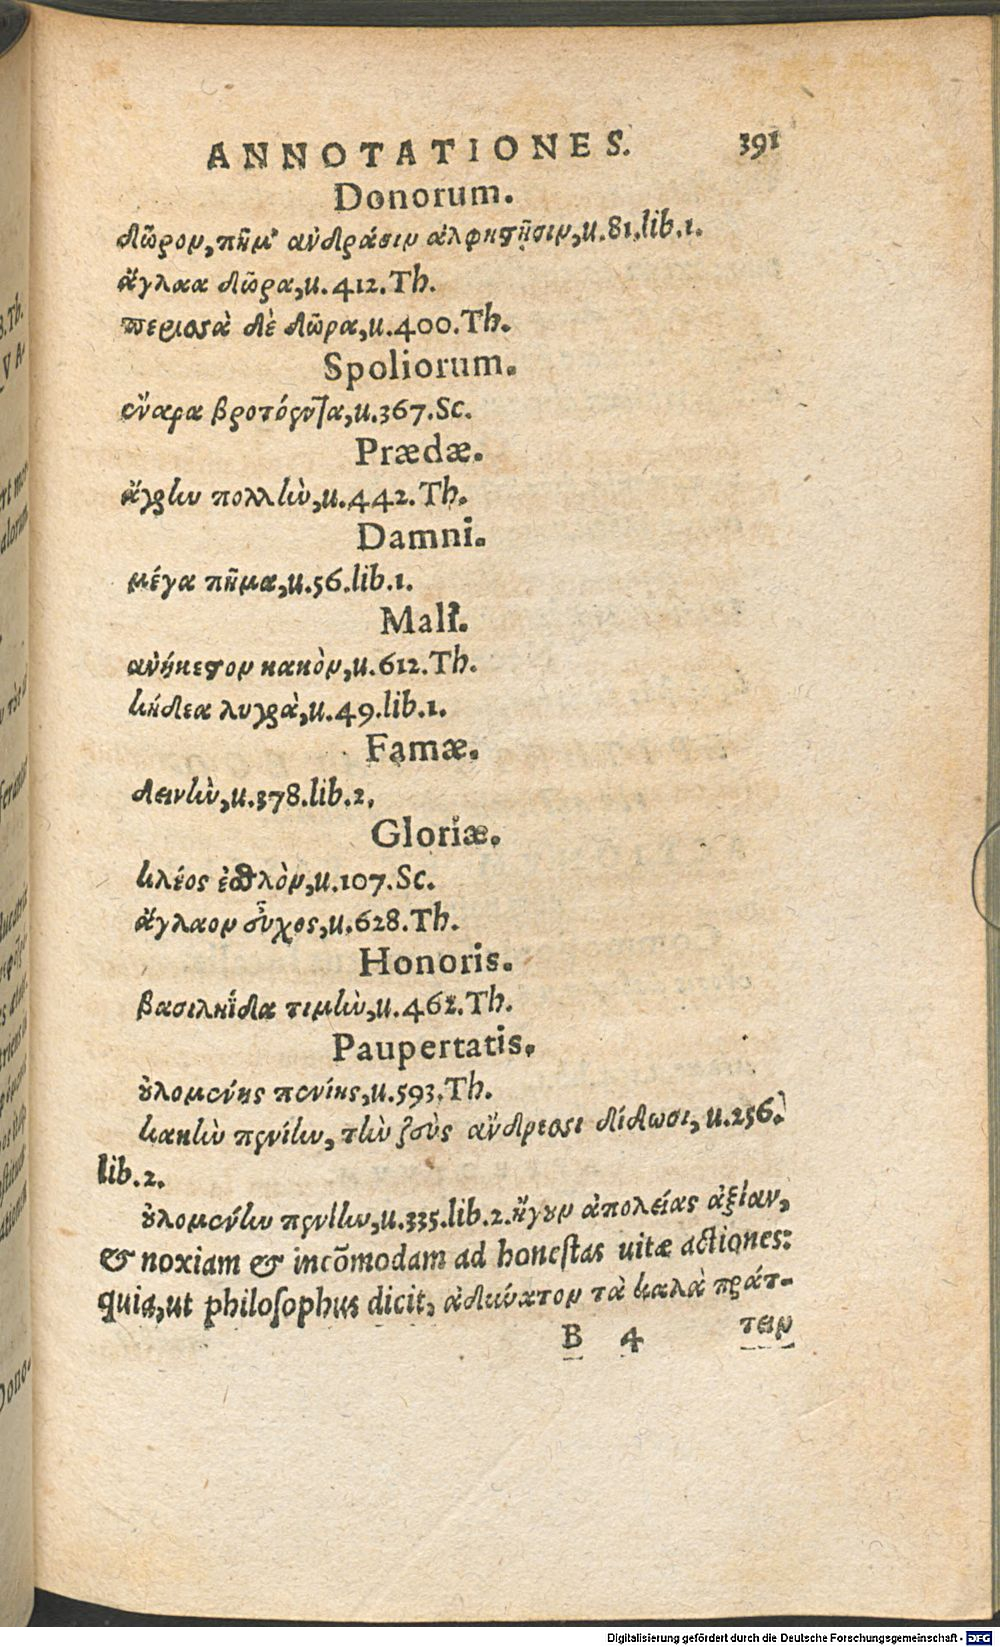 ANNOTATIONES. 391
Donorum.
δῶρον, πῆμ' ἀνδράσιν ἀλφηστῆσιν, u. 81. lib. 1.
ἄγλαα δῶρα, u. 412. Th.
περισσὰ δὲ δῶρα, u. 400. Th.
Spoliorum.
ἔναρα βροτόεντα, u. 367. Sc.
Prædæ.
ἄγρην πολλὴν, u. 442. Th.
Damni.
μέγα πῆμα, u. 56. lib. 1.
Mali.
ἀνήκεστον κακὸν, u. 612. Th.
κήδεα λυγρὰ, u. 49. lib. 1.
Famæ.
δεινὴν, u. 378. lib. 2.
Gloriæ.
κλέος ἐσθλὸν, u. 107. Sc.
ἄγλαον εὖχος, u. 628. Th.
Honoris.
βασιληΐδα τιμὴν, u. 462. Th.
Paupertatis.
ὀλομένης πενίης, u. 593. Th.
κακὴν πενίην, τὴν ζεὺς ἄνδρεσσι δίδωσι, u. 256.
lib. 2.
ὀλομένην πενίην, u. 335. lib. 2. ἤγουν ἀπολείας ἀξίαν,
& noxiam & incõmodam ad honestas uitæ actiones:
quia, ut philosophus dicit, ἀδύνατον τὰ καλὰ πράτ-
B 4 τειν
Digitalisierung gefördert durch die Deutsche Forschungsgemeinschaft - DFG